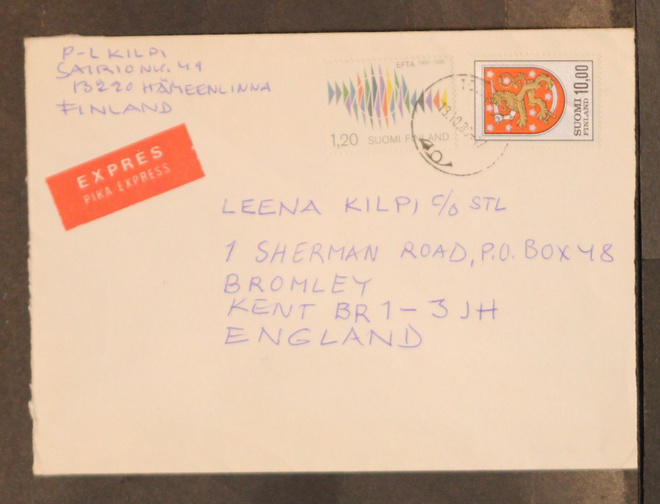 P-L KILPI
13220 HÄMEENLINNA
FINLAND
EFTA
1,20 SUOMI FINLAND
SUOMI 10,00
FINLAND
EXPRÈS
PIKA EXPRESS
LEENA KILPI c/o STL
1 SHERMAN ROAD, P.O. BOX 48
BROMLEY
KENT BR1-3JH
ENGLAND